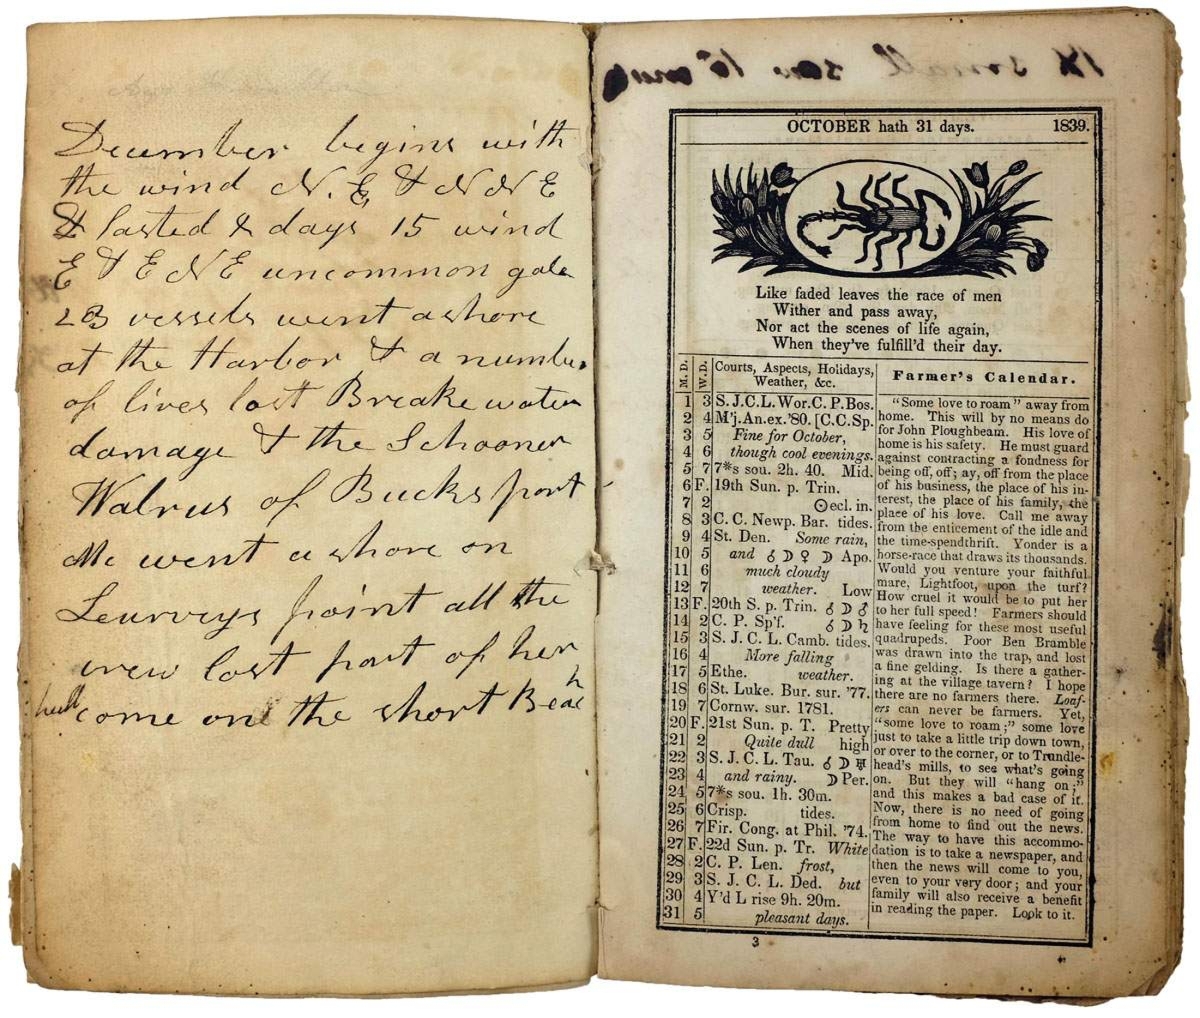 December begins with
the wind N. E, & N N E
& lasted & days 15 wind
E & E N E uncommon gale
23 vessels went a shore
at the Harbor & a number
of lives lost Breake water
damage & the Schooner
Walrus of Bucksport
Me went a shore on
Leurveys point all the
crew lost part of her
hull come on the short Beach
18 small
OCTOBER hath 31 days. 1839.
Like faded leaves the race of men
Wither and pass away,
Nor act the scenes of life again,
When they've fulfill'd their day.
M. D. W. D. Courts, Aspects, Holidays,
Weather, &c.
1 3 S. J. C. L. Wor. C. P. Bos.
2 4 M'j. An. ex. '80. [C. C. Sp.
3 5 Fine for October,
4 6 though cool evenings.
5 7 7*s sou. 2h. 40. Mid.
6 F. 19th Sun. p. Trin.
7 2 ☉ecl. in.
8 3 C. C. Newp. Bar. tides.
9 4 St. Den. Some rain,
10 5 and ☌ ☽ ♀ ☽ Apo.
11 6 much cloudy
12 7 weather. Low
13 F. 20th S. p. Trin. ☌ ☽ ♂
14 2 C. P. Sp'f. ☌ ☽ ♄
15 3 S. J. C. L. Camb. tides.
16 4 More falling
17 5 Ethe. weather.
18 6 St. Luke. Bur. sur. '77.
19 7 Cornw. sur. 1781.
20 F. 21st Sun. p. T. Pretty
21 2 Quite dull high
22 3 S. J. C. L. Tau. ☌ ☽ ♅
23 4 and rainy. ☽ Per.
24 5 7*s sou. 1h. 30m.
25 6 Crisp. tides.
26 7 Fir. Cong. at Phil. '74.
27 F. 22d Sun. p. Tr. White
28 2 C. P. Len. frost,
29 3 S. J. C. L. Ded. but
30 4 Y'd L rise 9h. 20m.
31 5 pleasant days.
Farmer's Calendar.
"Some love to roam" away from
home. This will by no means do
for John Ploughbeam. His love of
home is his safety. He must guard
against contracting a fondness for
being off, off; ay, off from the place
of his business, the place of his in-
terest, the place of his family, the
place of his love. Call me away
from the enticement of the idle and
the time-spendthrift. Yonder is a
horse-race that draws its thousands.
Would you venture your faithful
mare, Lightfoot, upon the turf?
How cruel it would be to put her
to her full speed! Farmers should
have feeling for these most useful
quadrupeds. Poor Ben Bramble
was drawn into the trap, and lost
a fine gelding. Is there a gather-
ing at the village tavern? I hope
there are no farmers there. Loaf-
ers can never be farmers. Yet,
"some love to roam;" some love
just to take a little trip down town,
or over to the corner, or to Trundle-
head's mills, to see what's going
on. But they will "hang on;"
and this makes a bad case of it.
Now, there is no need of going
from home to find out the news.
The way to have this accommo-
dation is to take a newspaper, and
then the news will come to you,
even to your very door; and your
family will also receive a benefit
in reading the paper. Look to it.
3